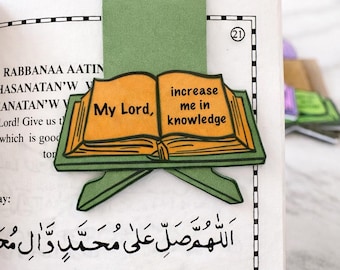 21
RABBANAA AATIN
HASANATAN'W
ANATAN'W
Lord! Give us
which is good
tor
My Lord,
increase
me in
knowledge
ay:
اَللّٰهُمَّ صَلِّ عَلٰى مُحَمَّدٍ وَّاٰلِ